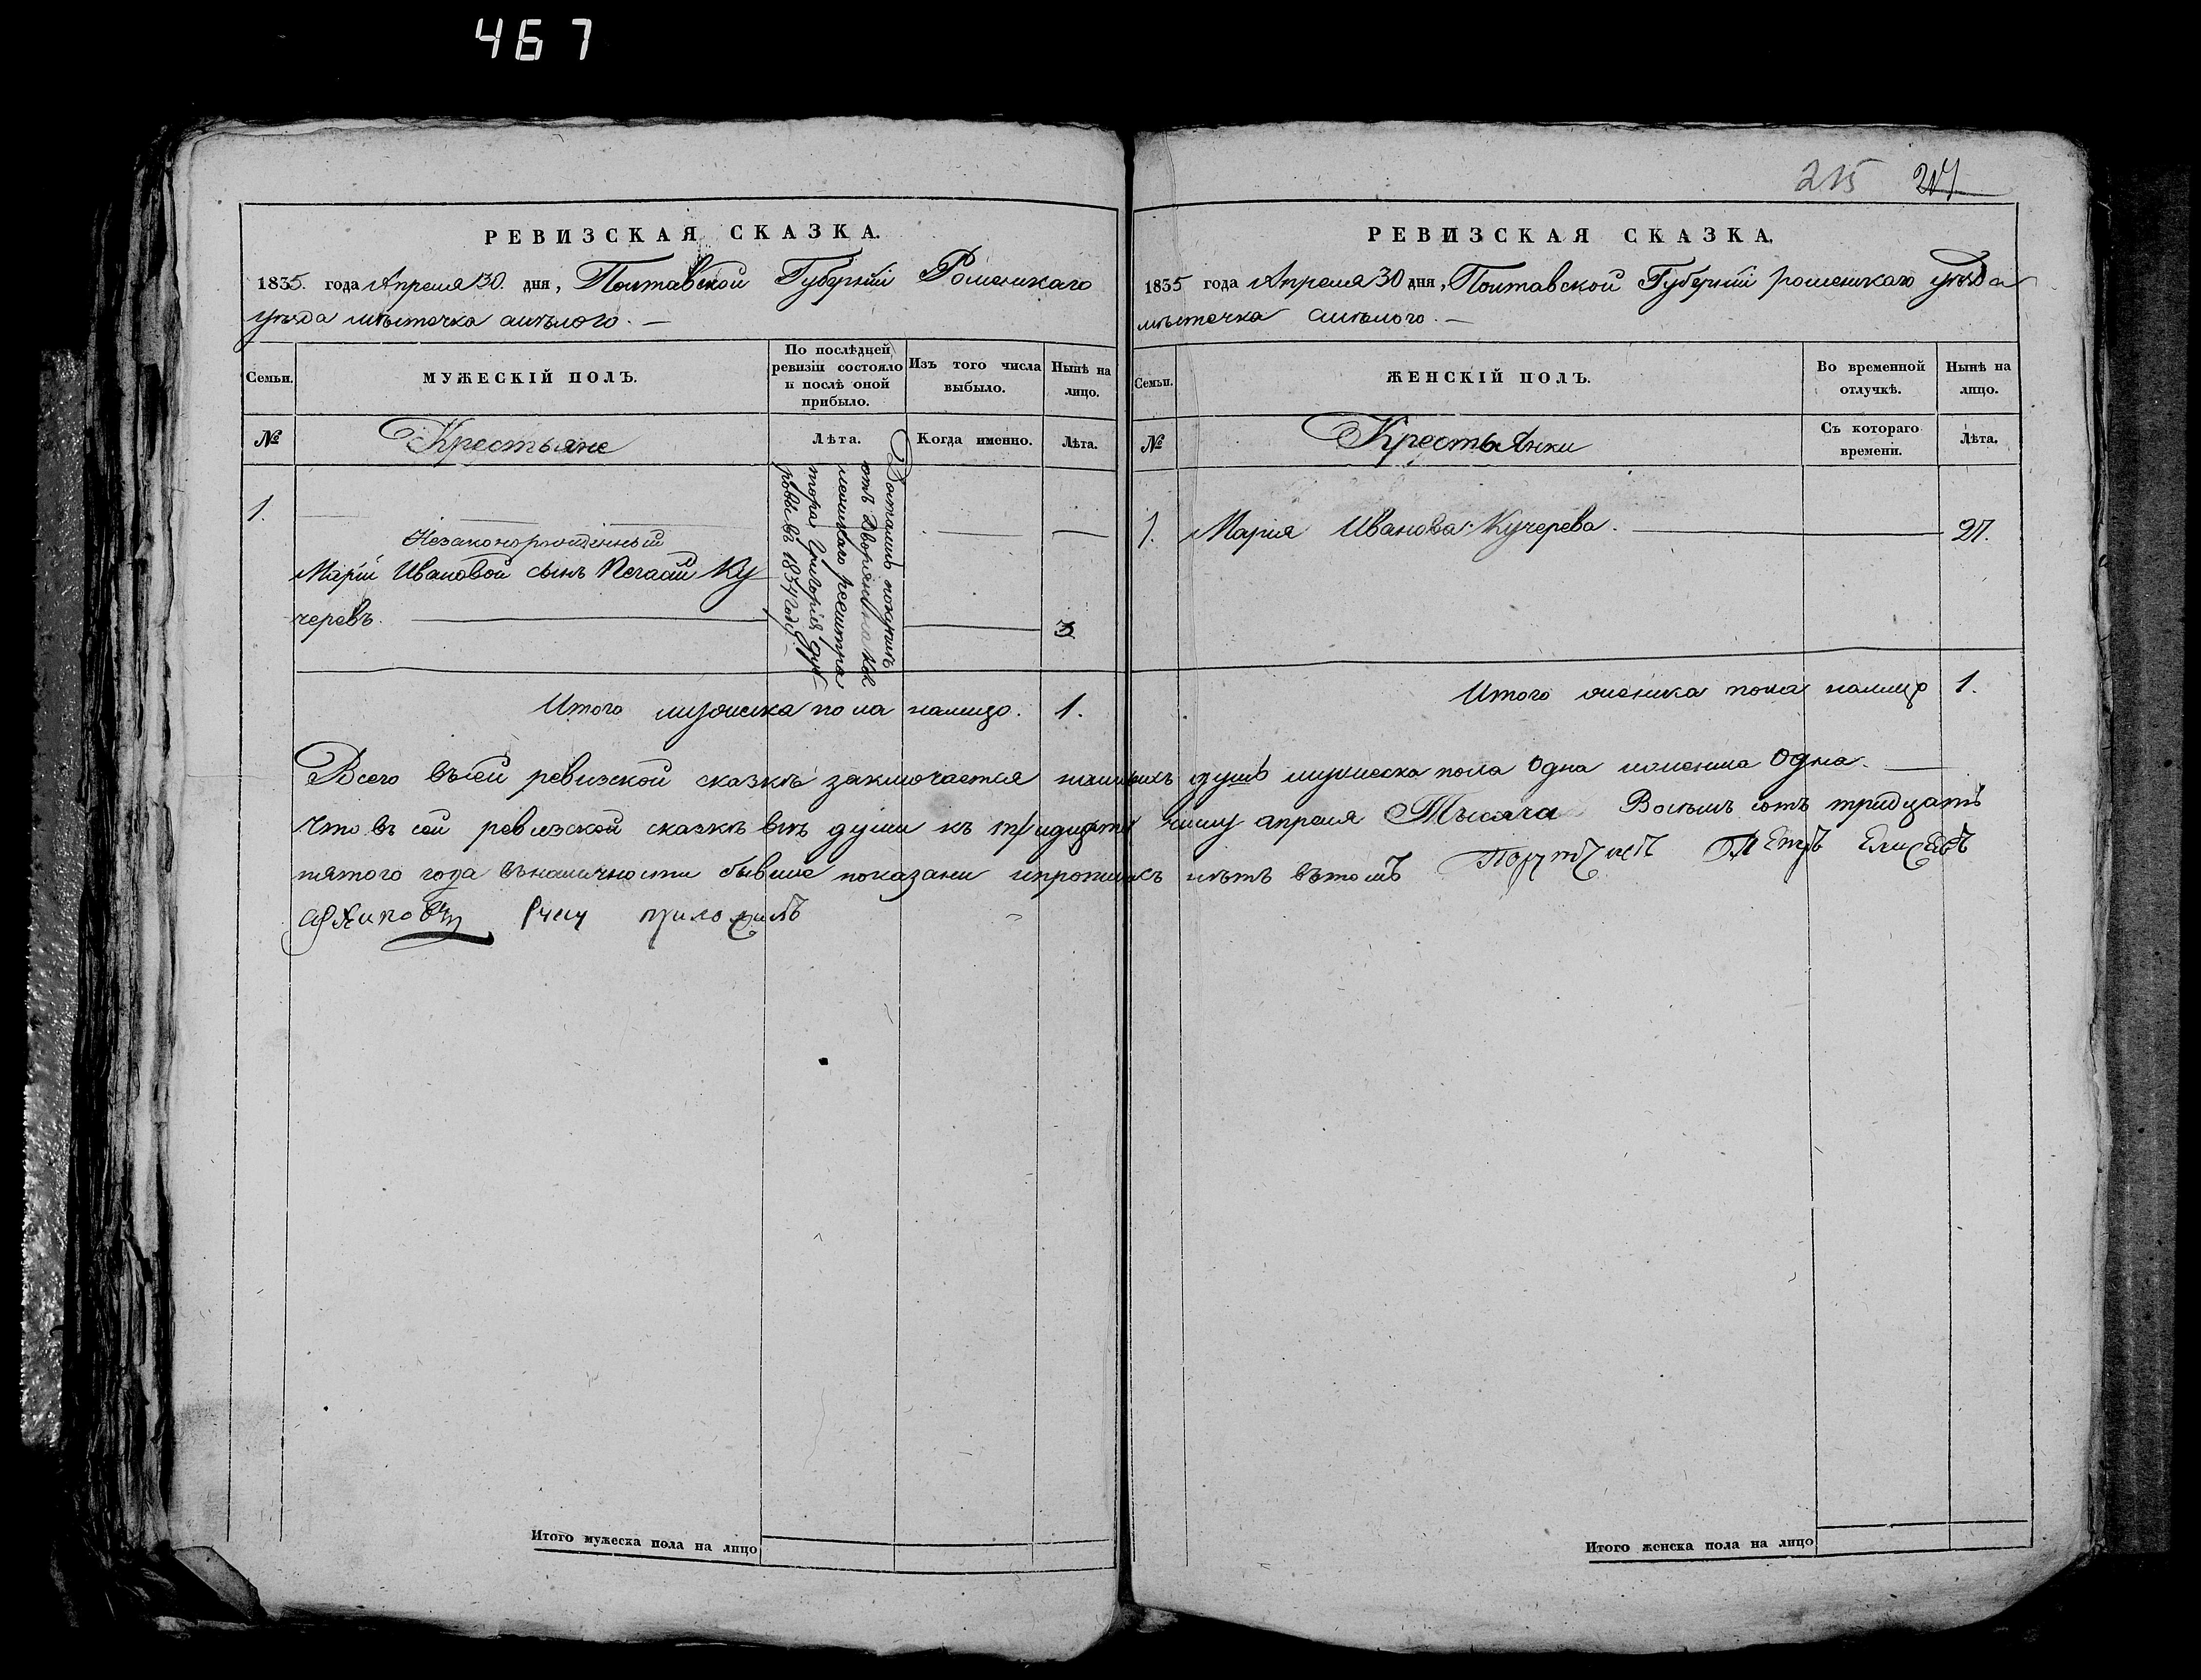 467
215 217
РЕВИЗСКАЯ СКАЗКА.
1835. года Апреля 30. дня, Полтавской Губернiи Роменскаго
уѣзда мѣстечка смѣлого. —
Семьи.
МУЖЕСКІЙ ПОЛЪ.
По послѣдней ревизіи состояло и послѣ оной прибыло.
Изъ того числа выбыло.
Нынѣ на лицо.
№
Крестьяне
Лѣта.
Когда именно.
Лѣта.
1.
Незаконорожденный
Маріи Ивановой сынъ Ку
черевъ.
3
Досталмь покупкъ
отъ Дворянина кол
лежскаго регистра
тора Григорія
въ 1834 году
Итого мужеска пола налицо. 1.
РЕВИЗСКАЯ СКАЗКА.
1835 года Апреля 30 дня, Полтавской Губернiи роменскаго уѣзда
мѣстечка смѣлого. —
Семьи.
ЖЕНСКІЙ ПОЛЪ.
Во временной отлучкѣ.
Нынѣ на лицо.
№
Крестьянки
Съ котораго времени.
Лѣта.
1. Мария Иванова Кучерева. 27.
Итого женска пола налицо 1.
Всего въсей ревизской сказкѣ заключается наличныхъ душъ мужеска пола одна иженска одна.
Что въ сей ревизской сказкѣ всѣ души къ тридцатому числу апреля Тысяча Восемь сотъ тридцать
пятого года въналичности бывшие показани ипрописныхъ нѣтъ вътомъ Порутчикъ Петръ Елисеевъ
руку приложилъ
Итого мужеска пола на лицо
Итого женска пола на лицо